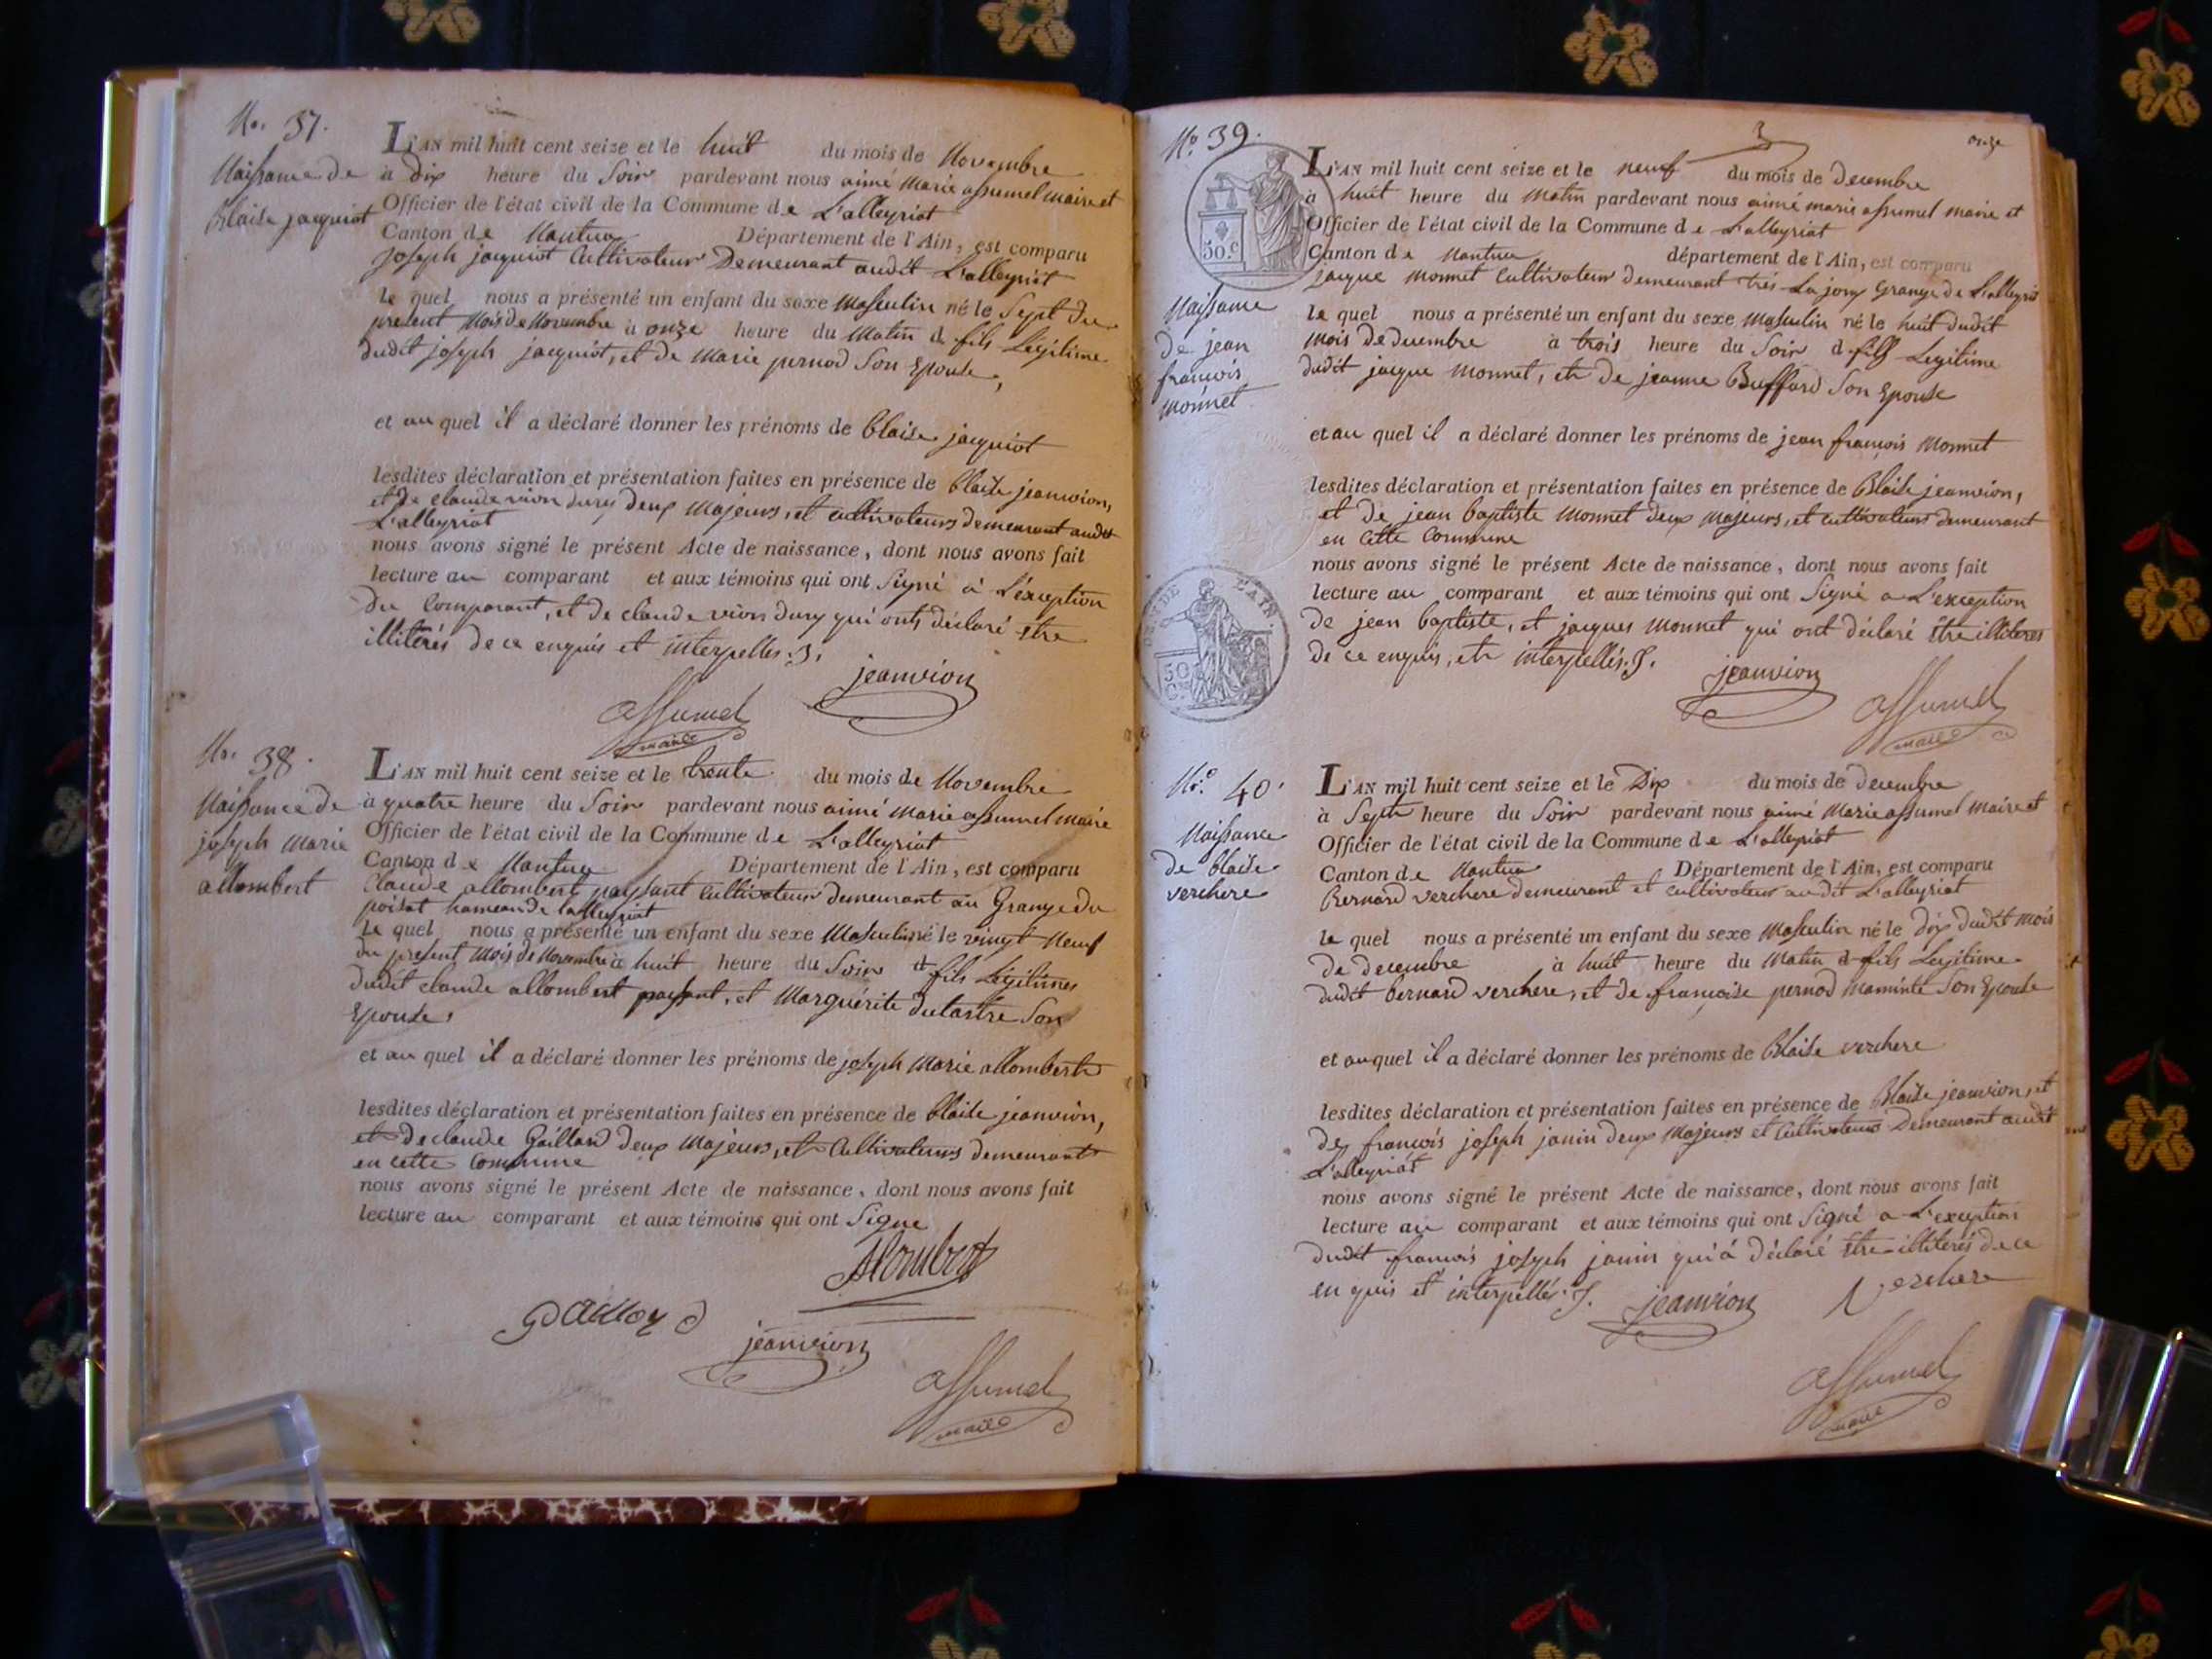 No. 37.
Naissance de
Blaise jacquiot
L'AN mil huit cent seize et le huit du mois de Novembre
à dix heure du Soir pardevant nous aimé marie assumel maire et
Officier de l'état civil de la Commune de L'alleyriat
Canton de Nantua Département de l'Ain, est comparu
joseph jacquiot Cultivateur Demeurant audit L'alleyriat
le quel nous a présenté un enfant du sexe Masculin né le Sept du
present Mois de Novembre à onze heure du Matin & fils Légitime
dudit joseph jacquiot, et de Marie pernod Son Epouse,
et au quel il a déclaré donner les prénoms de blaise jacquiot
lesdites déclaration et présentation faites en présence de blaise jeanvion,
et De claude vion dury deux Majeurs, et cultivateurs demeurant audit
L'alleyriat
nous avons signé le présent Acte de naissance, dont nous avons fait
lecture au comparant et aux témoins qui ont Signé à L'éxception
du Comparant, et de claude vion dury qui ont déclaré être
illiterés de ce enquis et interpelles.
jeanvion
assumel
maire
No. 38.
Naissance de
joseph Marie
allombert
L'AN mil huit cent seize et le trente du mois de Novembre
à quatre heure du Soir pardevant nous aimé Marie assumel maire
Officier de l'état civil de la Commune de L'alleyriat
Canton de Nantua Département de l'Ain, est comparu
Claude allombert paysant cultivateur demeurant au Grange du
poisat hameau de lalleyriat
le quel nous a présenté un enfant du sexe Masculin né le vingt Neuf
du present Mois de Novembre à huit heure du Soir & fils Légitimes
dudit claude allombert paysant, et Marguérite dutartre Son
Epouse,
et au quel il a déclaré donner les prénoms de joseph Marie allombert
lesdites déclaration et présentation faites en présence de blaise jeanvion,
et de claude Gaillard deux Majeurs, et Cultivateurs demeurant
en cette commune
nous avons signé le présent Acte de naissance, dont nous avons fait
lecture au comparant et aux témoins qui ont Signe
Allombert
jeanvion
assumel
maire
No. 39.
3
onze
50.c
Naissance
De jean
francois
monnet
L'AN mil huit cent seize et le neuf du mois de Decembre
à huit heure du Matin pardevant nous aimé marie assumel maire et
Officier de l'état civil de la Commune de L'alleyriat
Canton de Nantua département de l'Ain, est comparu
jacque Monnet Cultivateur demeurant Grange de L'alleyriat
le quel nous a présenté un enfant du sexe Masculin né le huit dudit
mois de decembre à trois heure du Soir & fils Legitime
dudit jacque Monnet, et De jeanne Buffard Son Epouse
et au quel il a déclaré donner les prénoms de jean francois Monnet
lesdites déclaration et présentation faites en présence de Blaise jeanvion,
et de jean baptiste Monnet deux majeurs, et cultivateurs demeurant
en Cette Commune
nous avons signé le présent Acte de naissance, dont nous avons fait
lecture au comparant et aux témoins qui ont Signé a L'exception
de jean baptiste, et jacques Monnet qui ont déclaré être illiteres
de ce enquis, et interpellés.
L'AIN.
50
C.
jeanvion
assumel
maire
No. 40.
Naissance
de blaise
verchere
L'AN mil huit cent seize et le Dix du mois de decembre
à Sept heure du Soir pardevant nous aimé Marie assumel Maire et
Officier de l'état civil de la Commune de L'alleyriat
Canton de Nantua Département de l'Ain, est comparu
Bernard verchere demeurant et cultivateur audit L'alleyriat
le quel nous a présenté un enfant du sexe Masculin né le dix dudit mois
de decembre à huit heure du Matin & fils Legitime
dudit bernard verchere, et de françoise pernod maminte Son Epouse
et au quel il a déclaré donner les prénoms de Blaise verchere
lesdites déclaration et présentation faites en présence de Blaise jeanvion, et
de francois joseph janin deux Majeurs et Cultivateurs Demeurant audit
L'alleyriat
nous avons signé le présent Acte de naissance, dont nous avons fait
lecture au comparant et aux témoins qui ont Signé a L'exception
dudit francois joseph janin qui à déclaré être illiterés de ce
enquis et interpellés.
jeanvion
Verchere
assumel
maire